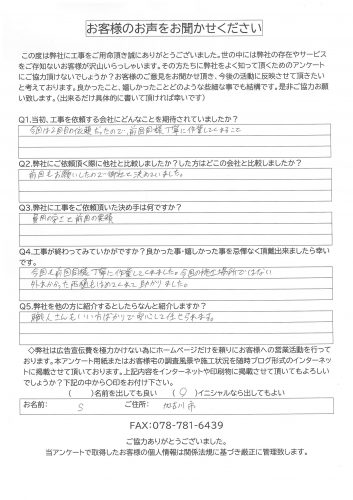 お客様のお声をお聞かせください
この度は弊社に工事をご用命頂き誠にありがとうございました。世の中には弊社の存在やサービス
をご存知ないお客様が沢山いらっしゃいます。その方たちに弊社をよく知って頂くためのアンケート
にご協力頂けないでしょうか？お客様のご意見をお聞かせ頂き、今後の活動に反映させて頂きたい
と考えております。良かったこと、嬉しかったことどのような些細な事でも結構です。是非ご協力お願
い致します。（出来るだけ具体的に書いて頂ければ幸いです）
Q1.当初、工事を依頼する会社にどんなことを期待されていましたか？
今回は2回目の依頼だったので、前回同様丁寧に作業してくれること
Q2.弊社にご依頼頂く際に他社と比較しましたか？した方はどこの会社と比較しましたか？
前回もお願いしたので御社と決めていました。
Q3.弊社に工事をご依頼頂いた決め手は何ですか？
費用の安さと前回の実績
Q4.工事が終わってみていかがですか？良かった事・嬉しかった事を忌憚なく頂戴出来ましたら幸い
です。
今回も前回同様、丁寧に作業してくれました。今回の施工場所ではない
外れかかった雨樋もはめてくれて助かりました。
Q5.弊社を他の方に紹介するとしたらなんと紹介しますか？
職人さんもいい方ばかりで安心して任せられます。
◇弊社は広告宣伝費を極力かけない為にホームページだけを頼りにお客様への営業活動を行って
おります。本アンケート用紙またはお客様宅の調査風景や施工状況を随時ブログ形式のインターネッ
トに掲載させて頂いております。上記内容をインターネットや印刷物に掲載させて頂いてもよろしい
でしょうか？下記の中から〇印をお付け下さい。
（　　）名前を出しても良い　（ ○ ）イニシャルなら出してもよい
お名前: S　ご住所: 加古川市
FAX:078-781-6439
ご協力ありがとうございました。
当アンケートで取得したお客様の個人情報は関係法規に基づき厳正に管理致します。